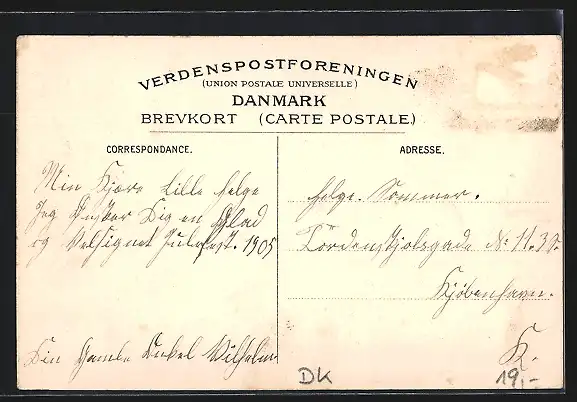 VERDENSPOSTFORENINGEN
(UNION POSTALE UNIVERSELLE)
DANMARK
BREVKORT (CARTE POSTALE.)
CORRESPONDANCE.
Min Kjære Lille Helge
Jeg Ønsker Dig en Glad
og Velsignet Julefest. 1905
Din Gamle Onkel Vilhelm.
ADRESSE.
Helge. Sommer.
Tordenskjolsgade No 11. 3 S.
Kjøbenhavn.
K.
DK
19,-